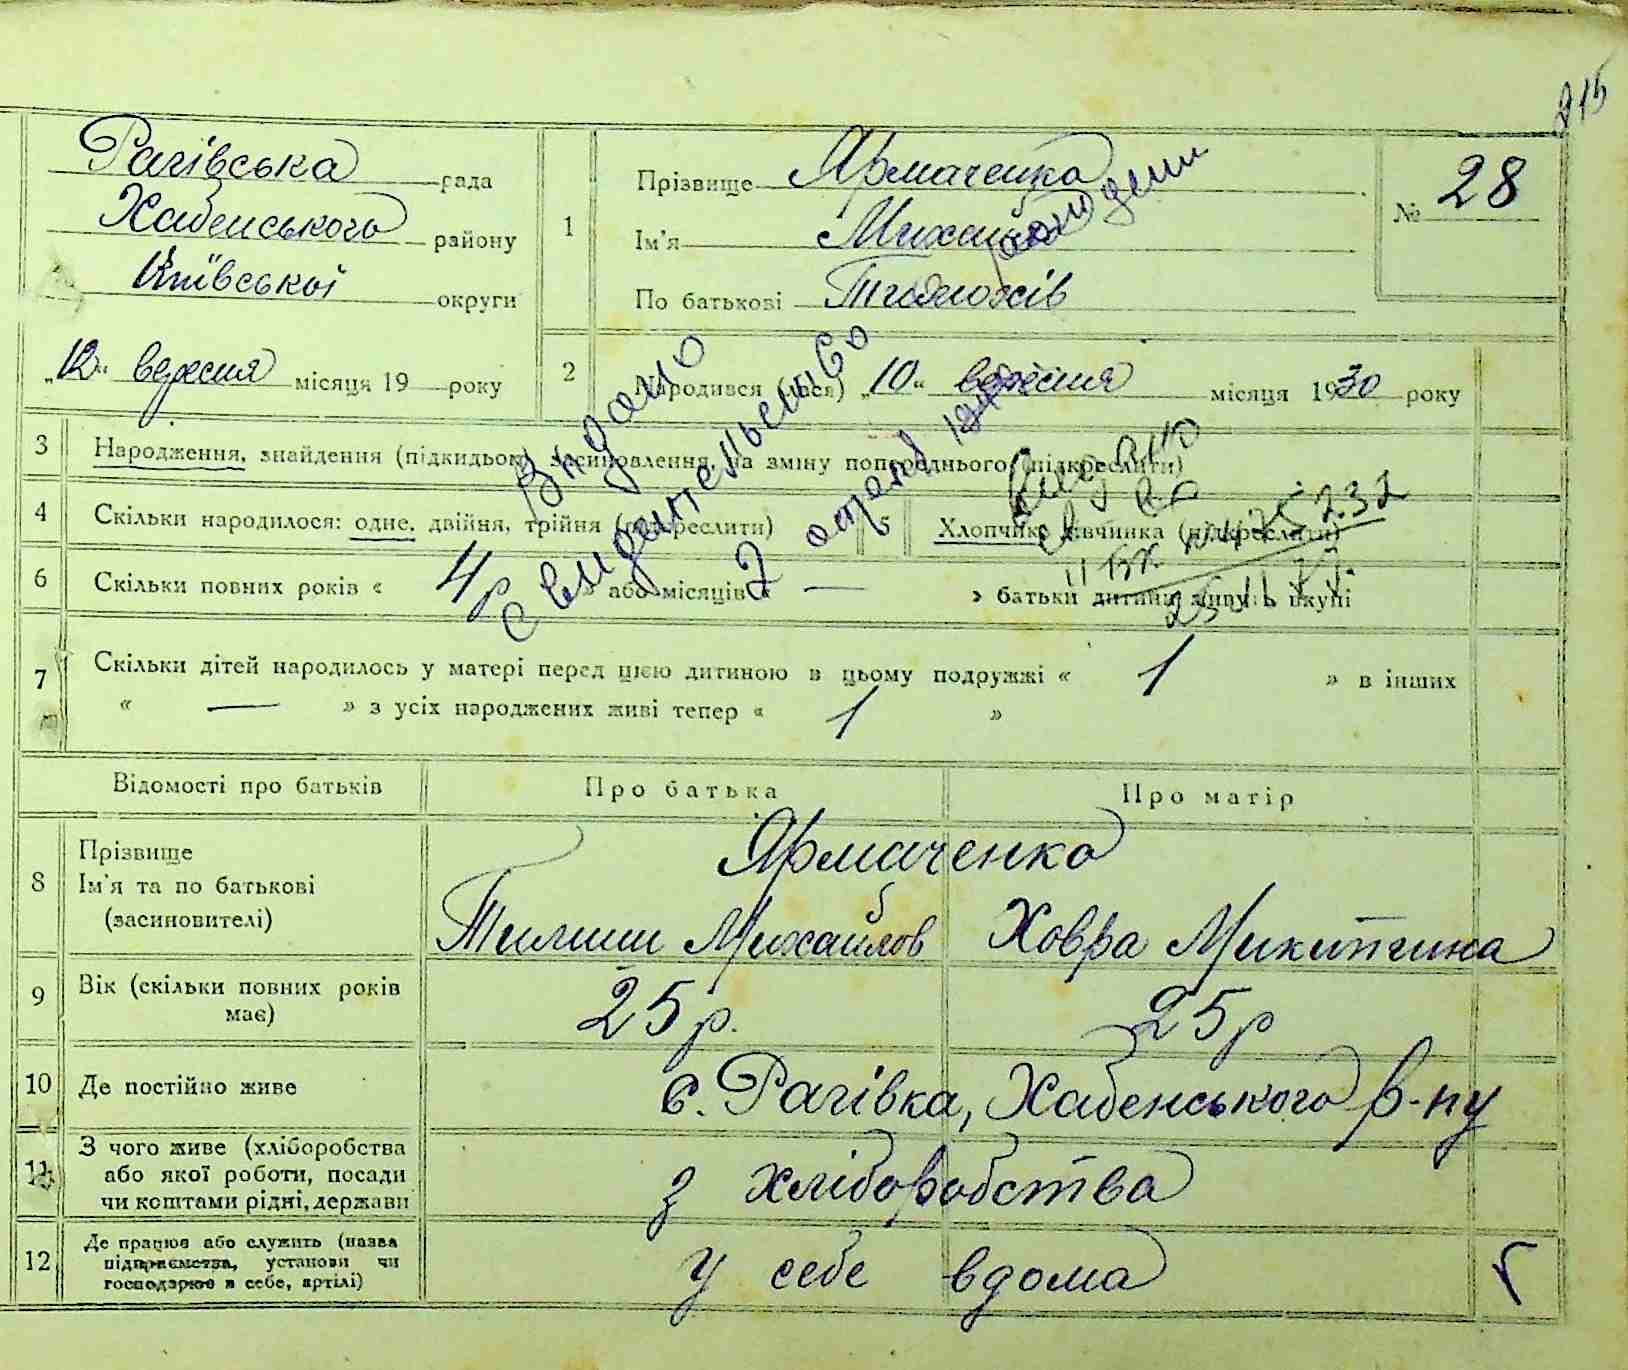 215
Рагівська рада
Хабенського району
Київської округи
„12“ вересня місяця 19 року
1
Прізвище Ярмаченко
Ім'я Михайло
По батькові
№ 28
2
Народився (лася) „10“ вересня місяця 1930 року
3
Народження, знайдення (підкидьок) засиновлення, на зміну попереднього (підкреслити)
4
Скільки народилося: одне, двійня, трійня (підкреслити)
5
Хлопчик, дівчинка (підкреслити)
6
Скільки повних років « 4р » або місяців « — » батьки дитини живуть вкупі
Видано
свидительство
2
Видано
7
Скільки дітей народилось у матері перед цією дитиною в цьому подружжі « 1 » в інших
« — » з усіх народжених живі тепер « 1 »
Відомості про батьків
Про батька
Про матір
8
Прізвище
Ім'я та по батькові
(засиновителі)
Ярмаченко
Тимиш Михайлов
Ховра Микитина
9
Вік (скільки повних років
має)
25р.
25р
10
Де постійно живе
с. Рагівка, Хабенського р-ну
11
З чого живе (хліборобства
або якої роботи, посади
чи коштами рідні, держави
з хліборобства
12
Де працює або служить (назва
підприємства, установи чи
господарює в себе, артілі)
у себе вдома